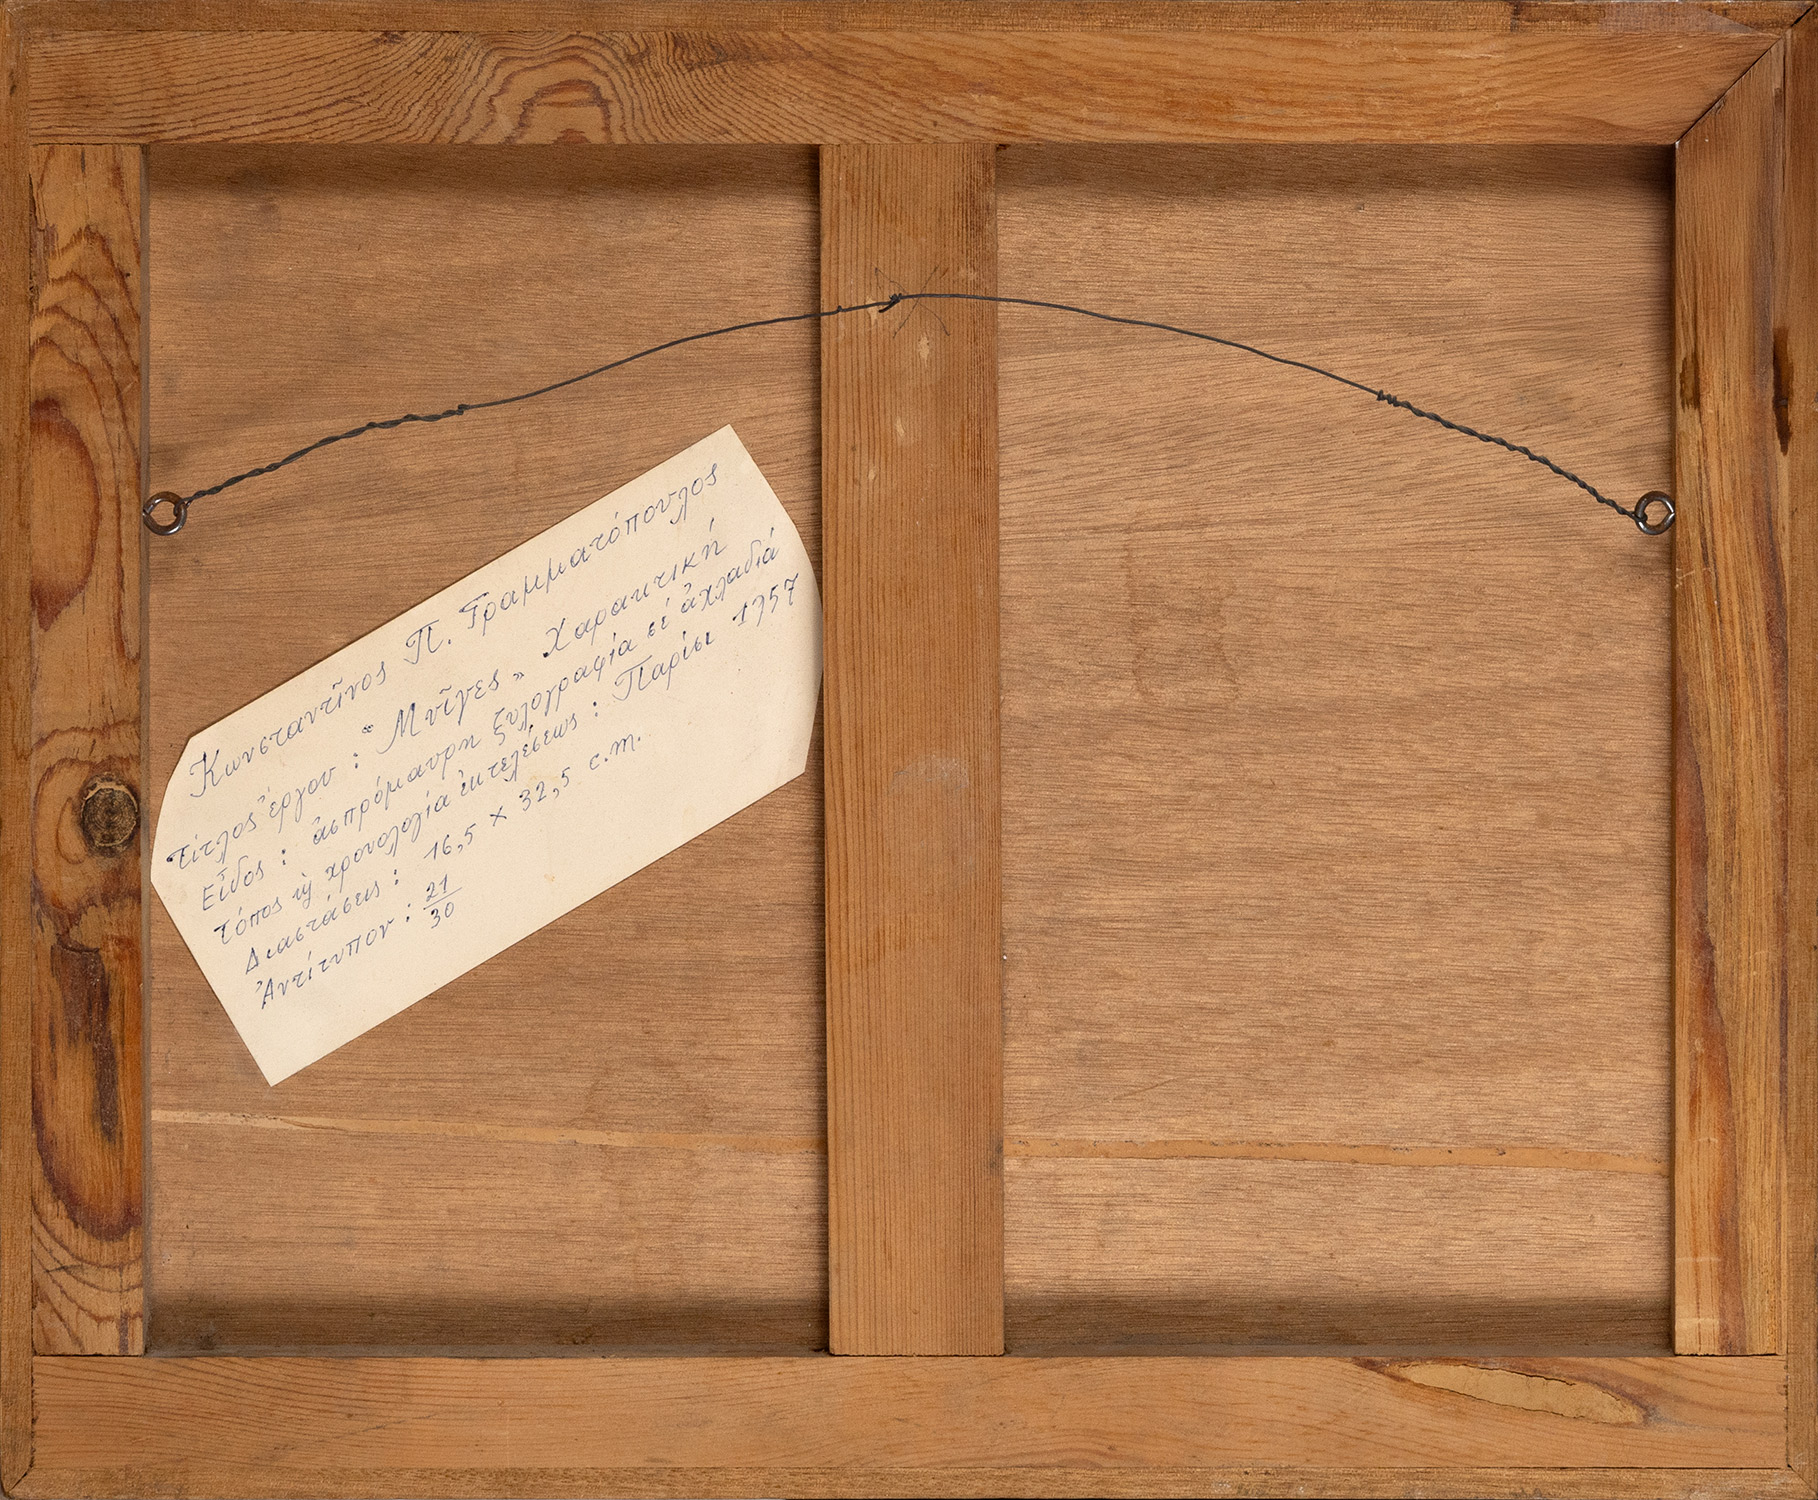 Κωνσταντῖνος Π. Γραμματόπουλος
τίτλος ἔργου : "Μνῖγες" Χαρακτική
Εἶδος : ἀσπρόμαυρη ξυλογραφία σέ ἀχλαδιά
τόπος ϗ χρονολογία ἐκτελέσεως : Παρίσι 1957
Διαστάσεις : 16,5 x 32,5 c.m.
Ἀντίτυπον : 21/30